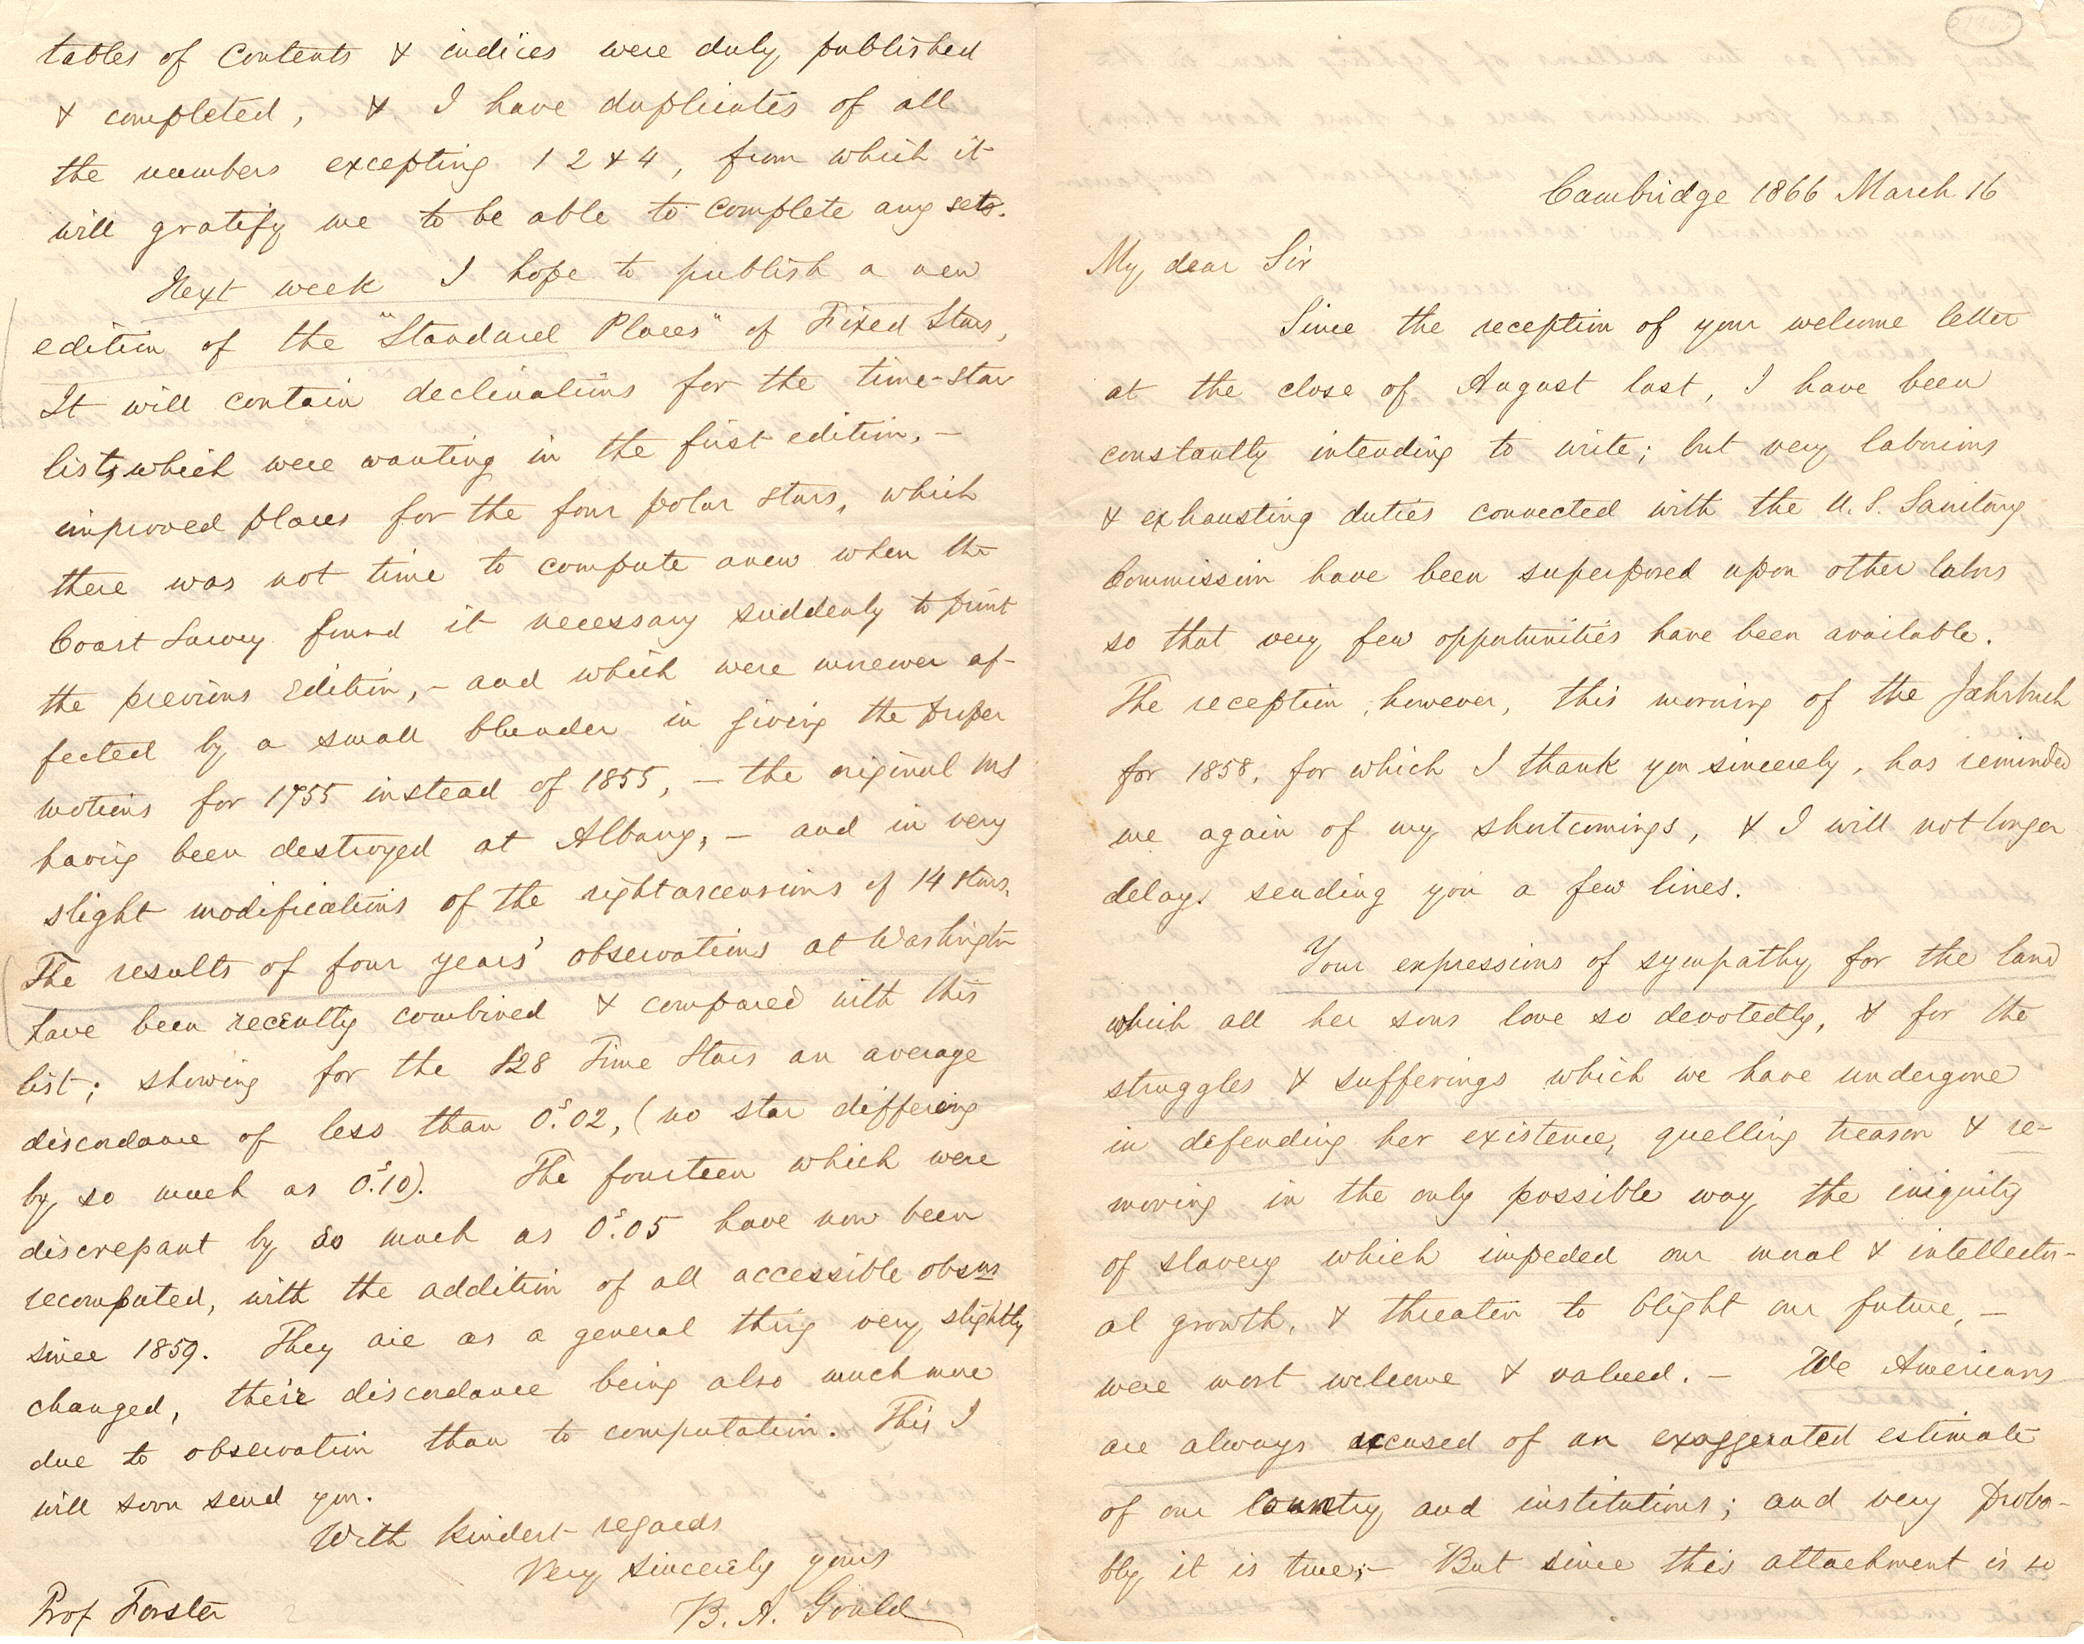 Cambridge 1866 March 16
My dear Sir
Since the reception of your welcome letter
at the close of August last, I have been
constantly intending to write; but very laborious
& exhausting duties connected with the U.S. Sanitary
Commission have been superposed upon other labors
so that very few opportunities have been available.
The reception, however, this morning of the Jahrbuch
for 1858, for which I thank you sincerely, has reminded
me again of my shortcomings, & I will not longer
delay sending you a few lines.
Your expressions of sympathy for the land
which all her sons love so devotedly, & for the
struggles & sufferings which we have undergone
in defending her existence, quelling treason & re-
moving in the only possible way the iniquity
of slavery which impeded our moral & intellectu-
al growth, & threaten to blight our future, –
were most welcome & valued. – We Americans
are always accused of an exaggerated estimate
of our country and institutions; and very proba-
bly it is true; – But since this attachment is so
tables of contents & indices were duly published
& completed, & I have duplicates of all
the numbers excepting 1 2 & 4, from which it
will gratify me to be able to complete any sets.
Next week I hope to publish a new
edition of the "Standard Places" of Fixed Stars,
It will contain declinations for the time-star
lists, which were wanting in the first edition, –
improved places for the four polar stars, which
there was not time to compute anew when the
Coast Survey found it necessary suddenly to print
the previous edition, – and which were moreover af-
fected by a small blunder in giving the proper
motions for 1755 instead of 1855, – the original MS
having been destroyed at Albany, – and in very
slight modifications of the right ascensions of 14 stars.
The results of four years' observations at Washington
have been recently combined & compared with this
list; showing for the 128 Time Stars an average
discordance of less than 0.ˢ02, (no star differing
by so much as 0.ˢ10). The fourteen which were
discrepant by so much as 0.ˢ05 have now been
recomputed, with the addition of all accessible obsns
since 1859. They are as a general thing very slightly
changed, their discordance being also much more
due to observation than to computation. This I
will soon send you.
With kindest regards
Very sincerely yours
B. A. Gould
Prof Förster